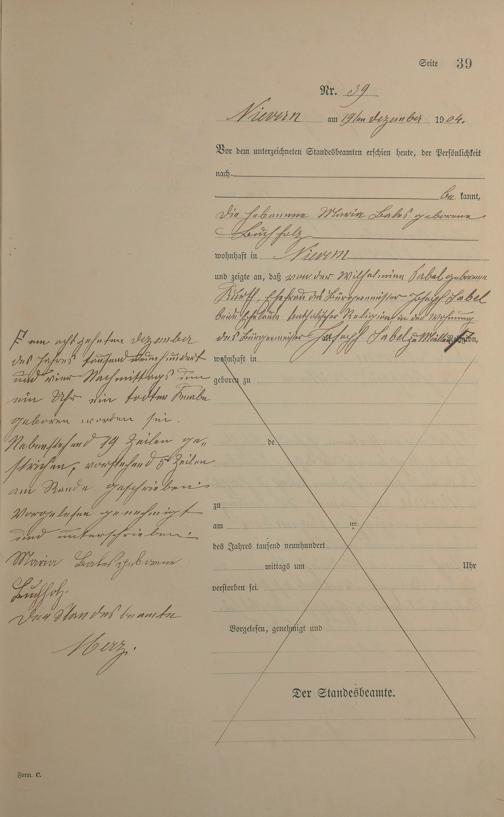 Seite 39
Nr. 39
Nievern am 19ten Dezember 1904.
Vor dem unterzeichneten Standesbeamten erschien heute, der Persönlichkeit
nach
be kannt,
die Hebamme Maria Bales geborene
Buchholz
wohnhaft in Nievern
und zeigte an, daß von der Wilhelmine Sabel geborene
Ehefrau des Bürgermeister Joseph Sabel
beide katholischer Religion in der Wohnung
des Bürgermeister Joseph Sabel zu
wohnhaft in
geboren zu
de
zu
am ten
des Jahres tausend neunhundert
mittags um Uhr
verstorben sei.
Vorgelesen, genehmigt und
Der Standesbeamte.
F am achtzehnten Dezember
des Jahres tausend neunhundert
und vier Nachmittags um
ein Uhr ein todter Knabe
geboren worden sei.
Nebenstehend 19 Zeilen ge-
strichen, vorstehend 5 Zeilen
am Rande geschrieben.
Vorgelesen genehmigt
und unterschrieben:
Maria Bales geborene
Buchholz.
Der Standesbeamte
Merz.
Form. C.